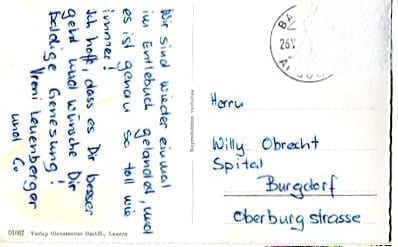 Wir sind wieder einmal
im Entlebuch gelandet, und
es ist genau so toll wie
immer!
Ich hoffe, dass es Dir besser
geht und wünsche Dir
baldige Genesung!
Vreni Leuenberger
und
Herrn
Willy Obrecht
Spital
Burgdorf
Oberburgstrasse
01067 Verlag Globetrotter GmbH., Luzern